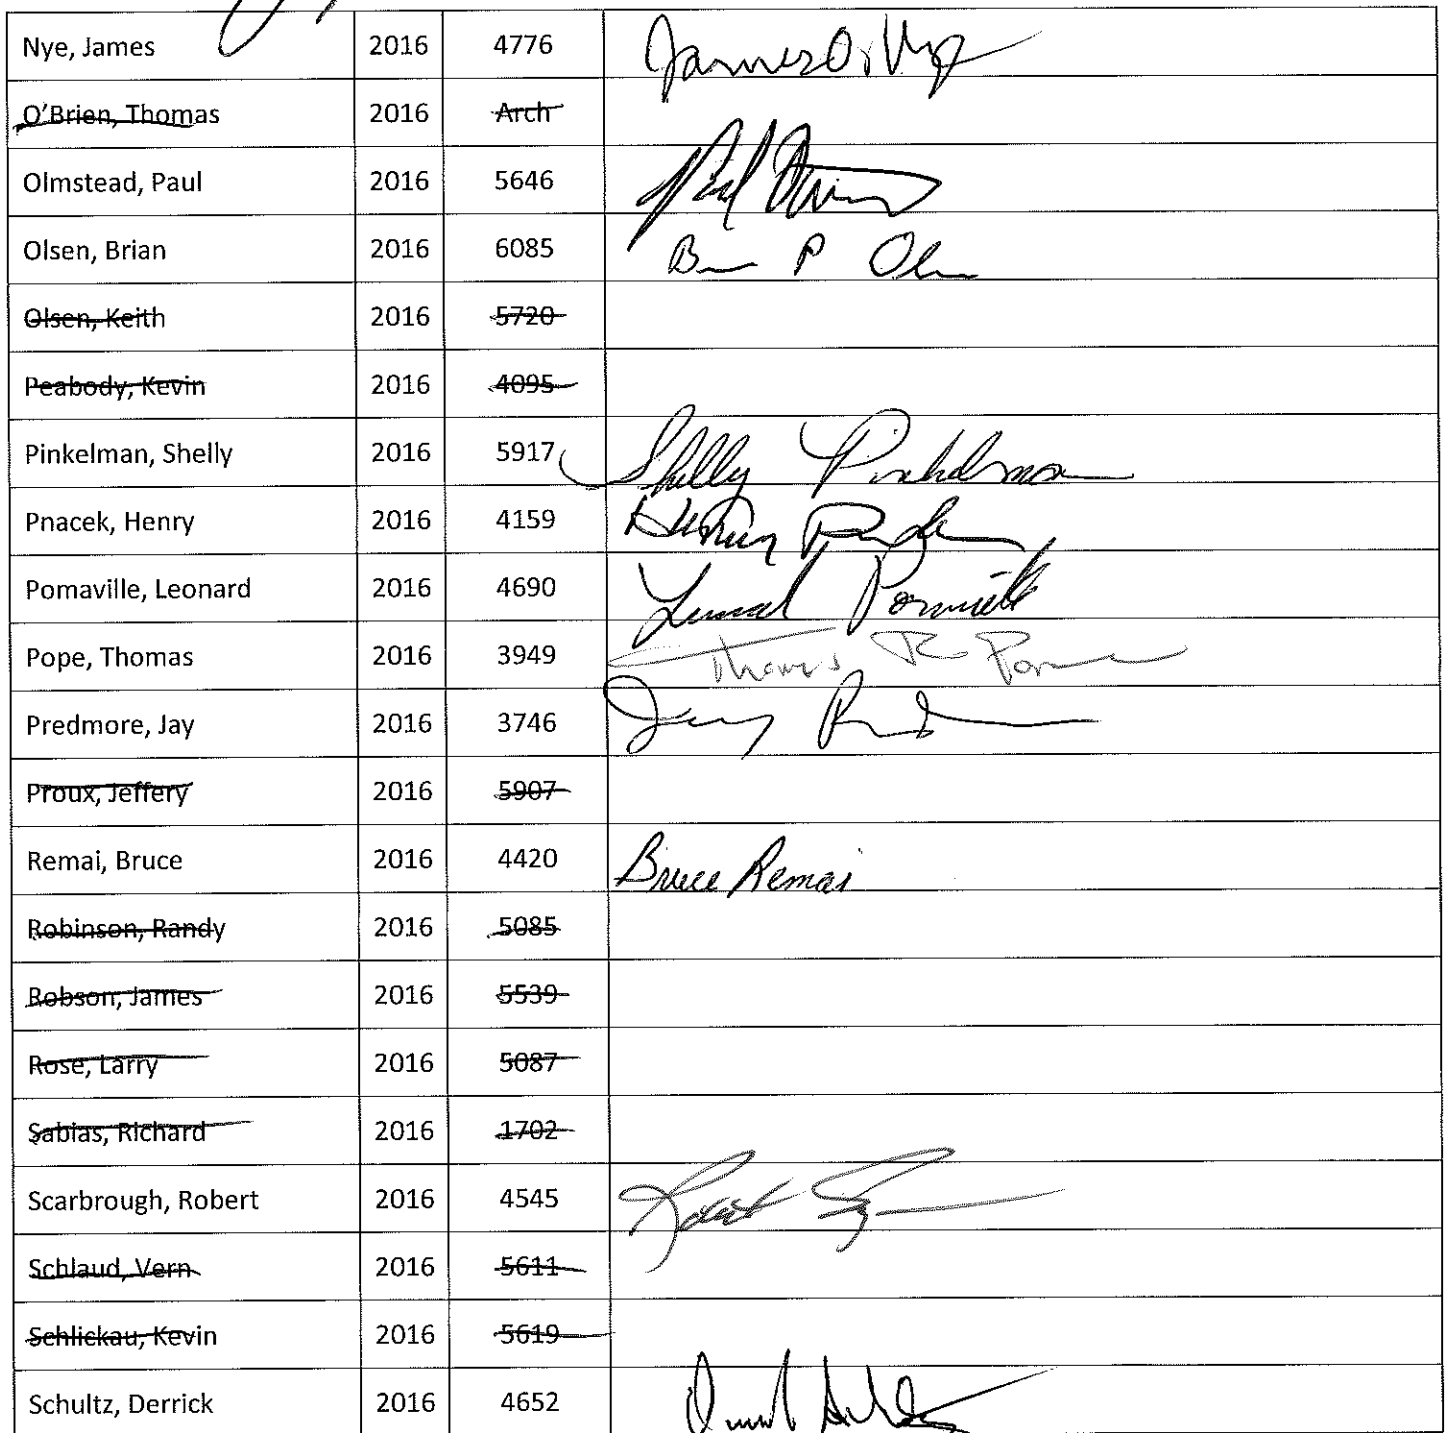 Nye, James 2016 4776 James O. Nye
O'Brien, Thomas 2016 Arch
Olmstead, Paul 2016 5646 Paul
Olsen, Brian 2016 6085 B P Olsen
Olsen, Keith 2016 5720
Peabody, Kevin 2016 4095
Pinkelman, Shelly 2016 5917 Shelly Pinkelman
Pnacek, Henry 2016 4159 Henry
Pomaville, Leonard 2016 4690
Pope, Thomas 2016 3949 Thomas R Pope
Predmore, Jay 2016 3746
Proux, Jeffery 2016 5907
Remai, Bruce 2016 4420 Bruce Remai
Robinson, Randy 2016 5085
Robson, James 2016 5539
Rose, Larry 2016 5087
Sabias, Richard 2016 1702
Scarbrough, Robert 2016 4545 Robert
Schlaud, Vern 2016 5611
Schlickau, Kevin 2016 5619
Schultz, Derrick 2016 4652